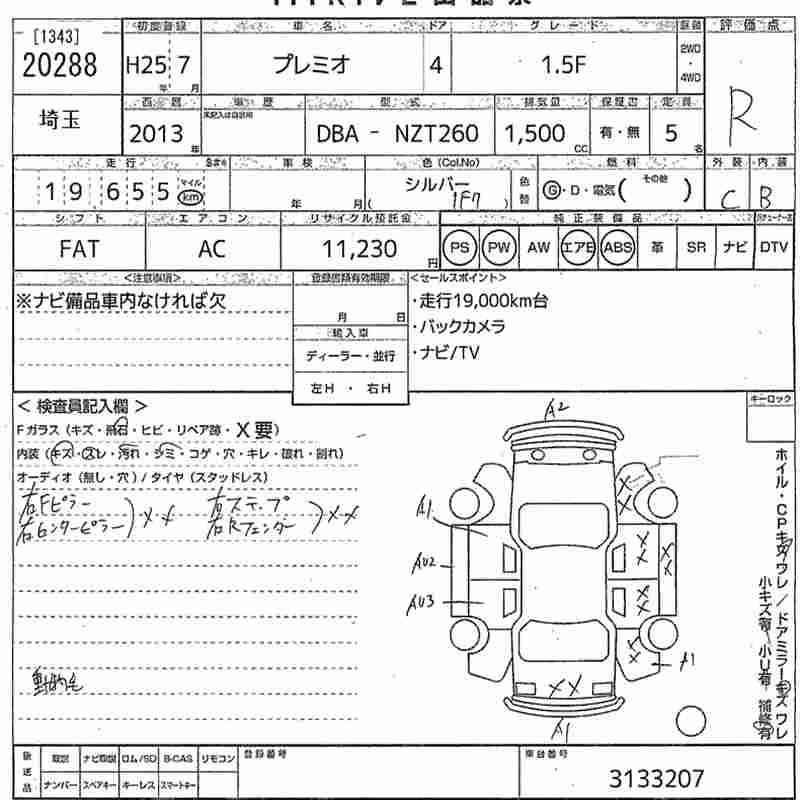 [1343]
20288
初度登録 車名 ドア グレード 駆動 評価点
H25 7 年 月 プレミオ 4 1.5F 2WD ・ 4WD R
埼玉
西暦 車歴 型式 排気量 保証書 定員
2013 年 未記入は自家用 DBA - NZT260 1,500 CC 有・無 5 名
走行 車検 色 (Col.No) 燃料 外装 内装
19 655 マイル km 年 月 シルバー ( 1F7 ) 色替 G・D・電気 ( その他 ) C B
シフト エアコン リサイクル預託金 純正装備品
FAT AC 11,230 円 PS PW AW エアB ABS 革 SR ナビ DTV
<注意事項> 登録書類有効期限 <セールスポイント>
※ナビ備品車内なければ欠
月 日
輸入車
ディーラー・並行
左H ・ 右H
・走行19,000km台
・バックカメラ
・ナビ/TV
< 検査員記入欄 >
Fガラス (キズ・飛石・ヒビ・リペア跡・X要)
内装 (キズ・スレ・汚れ・シミ・コゲ・穴・キレ・破れ・割れ)
オーディオ (無し・穴) / タイヤ (スタッドレス)
右Fピラー
右センターピラー ) XX
右ステップ
右Rフェンダー ) XX
キーロック
A2
A1
AU2
AU3
A1
A1
X X
X X
X X
X X
X X
X X
ホイル・CPキズワレ / ドアミラーキズワレ
小キズ有 小U有 補修有
後送品 取説 ナビ取説 ロム/SD B-CAS リモコン 登録番号 車台番号
ナンバー スペアキー キーレス スマートキー
3133207